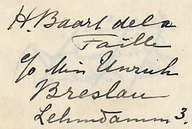 H. Baart de la
Faille
c/o Miss Unrich
Breslau
Lehmdamm 3.